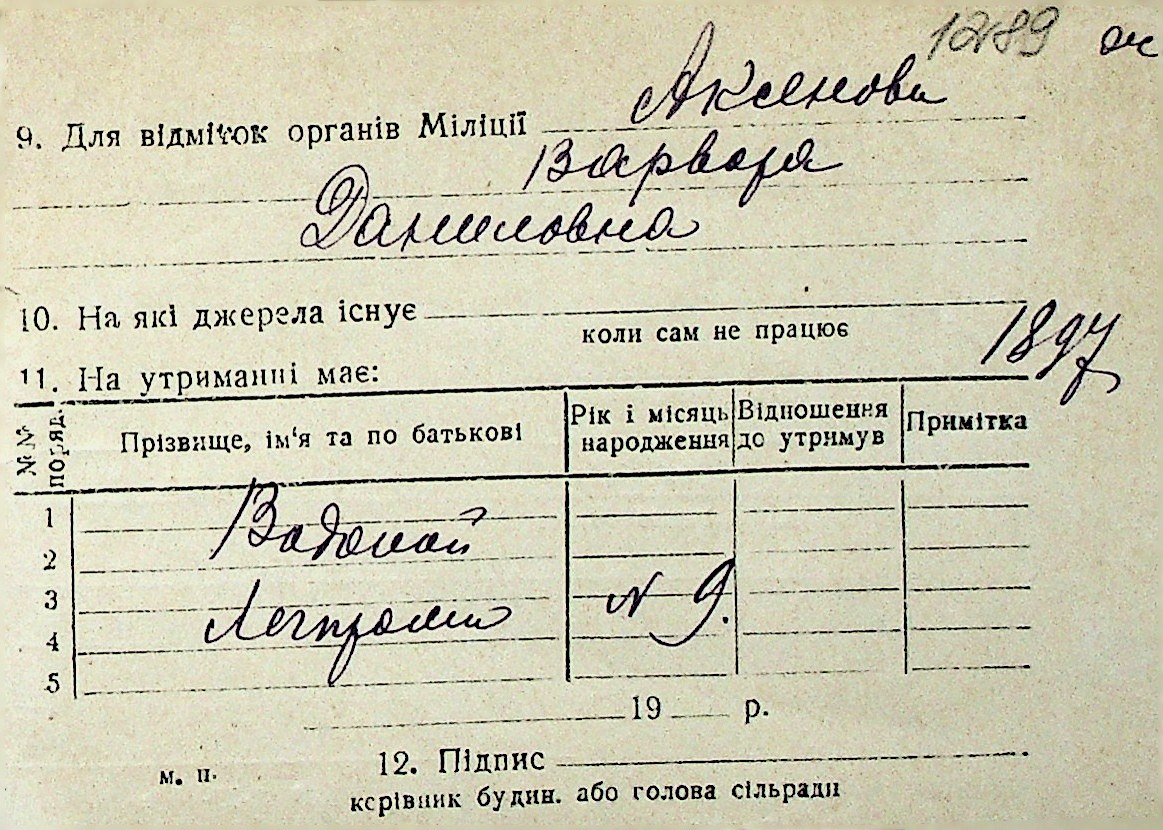 1289
9. Для відміток органів Міліції Аксенова
Варвара
Даниловна
10. На які джерела існує
коли сам не працює
1897
11. На утриманні має:
№№ поряд. Прізвище, ім'я та по батькові Рік і місяць народження Відношення до утримув Примітка
1
2
3 N 9.
4
5
19 р.
м. п. 12. Підпис
керівник будин. або голова сільради